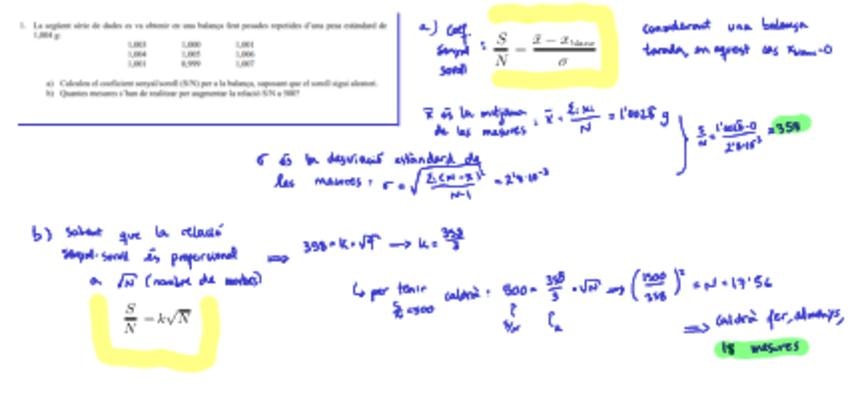 1. La següent sèrie de dades es va obtenir en una balança fent pesades repetides d'una pesa estàndard de
1,004 g:
1,003 1,000 1,001
1,004 1,005 1,006
1,001 0,999 1,007
a) Calculeu el coeficient senyal/soroll (S/N) per a la balança, suposant que el soroll sigui aleatori.
b) Quantes mesures s'han de realitzar per augmentar la relació S/N a 500?
a) Coef.
senyal
soroll : S/N = x̄ − x̄blanc / σ
considerant una balança
tarada, en aquest cas =0
x̄ és la mitjana
de les mesures : x̄ = Σxi/N = 1'0028 g
S/N = 1'0028-0 / 2'8·10⁻³ = 358
σ és la desviació estàndard de
les mesures : σ = √ /N-1 = 2'8·10⁻³
b) Sabent que la relació
senyal-soroll és proporcional
a √N (nombre de)
S/N = k√N
⇒ 358 = k·√9 → k = 358/3
↳ per tenir
S/N = 500 caldrà : 500 = 358/3 · √N ⇒ (1500/358)² = N = 17'56
S/N k
⇒ caldrà fer, almenys,
18 mesures